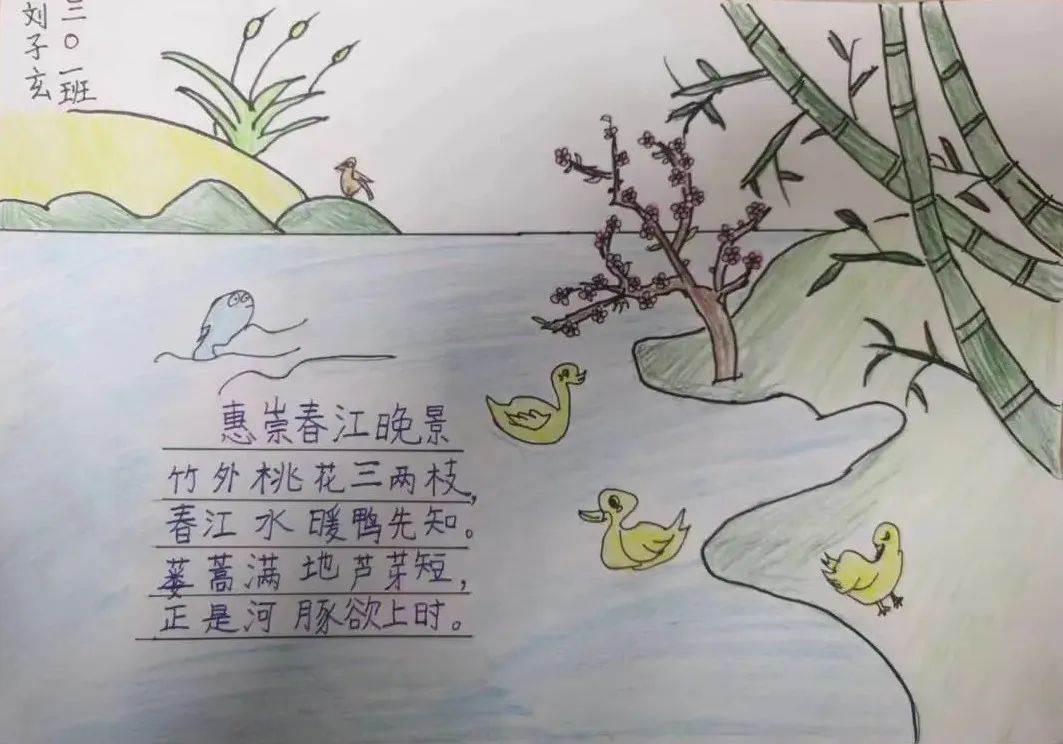 三〇一班
刘子玄
惠崇春江晚景
竹外桃花三两枝,
春江水暖鸭先知。
蒌蒿满地芦芽短,
正是河豚欲上时。